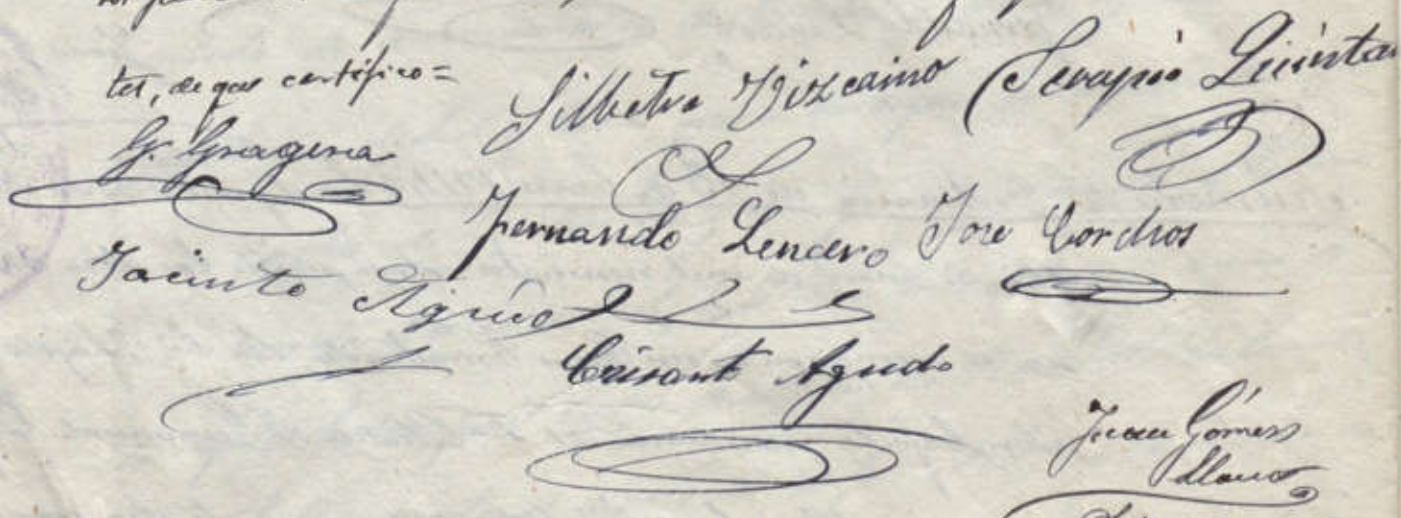 tes, de que certifico=
Silbestre Vizcaino
Serapio Quintan
G. Gragera
Fernando Lencero
Jose Cordros
Jacinto Agudo
Crisanto Agudo
Juan Gómez
Llano